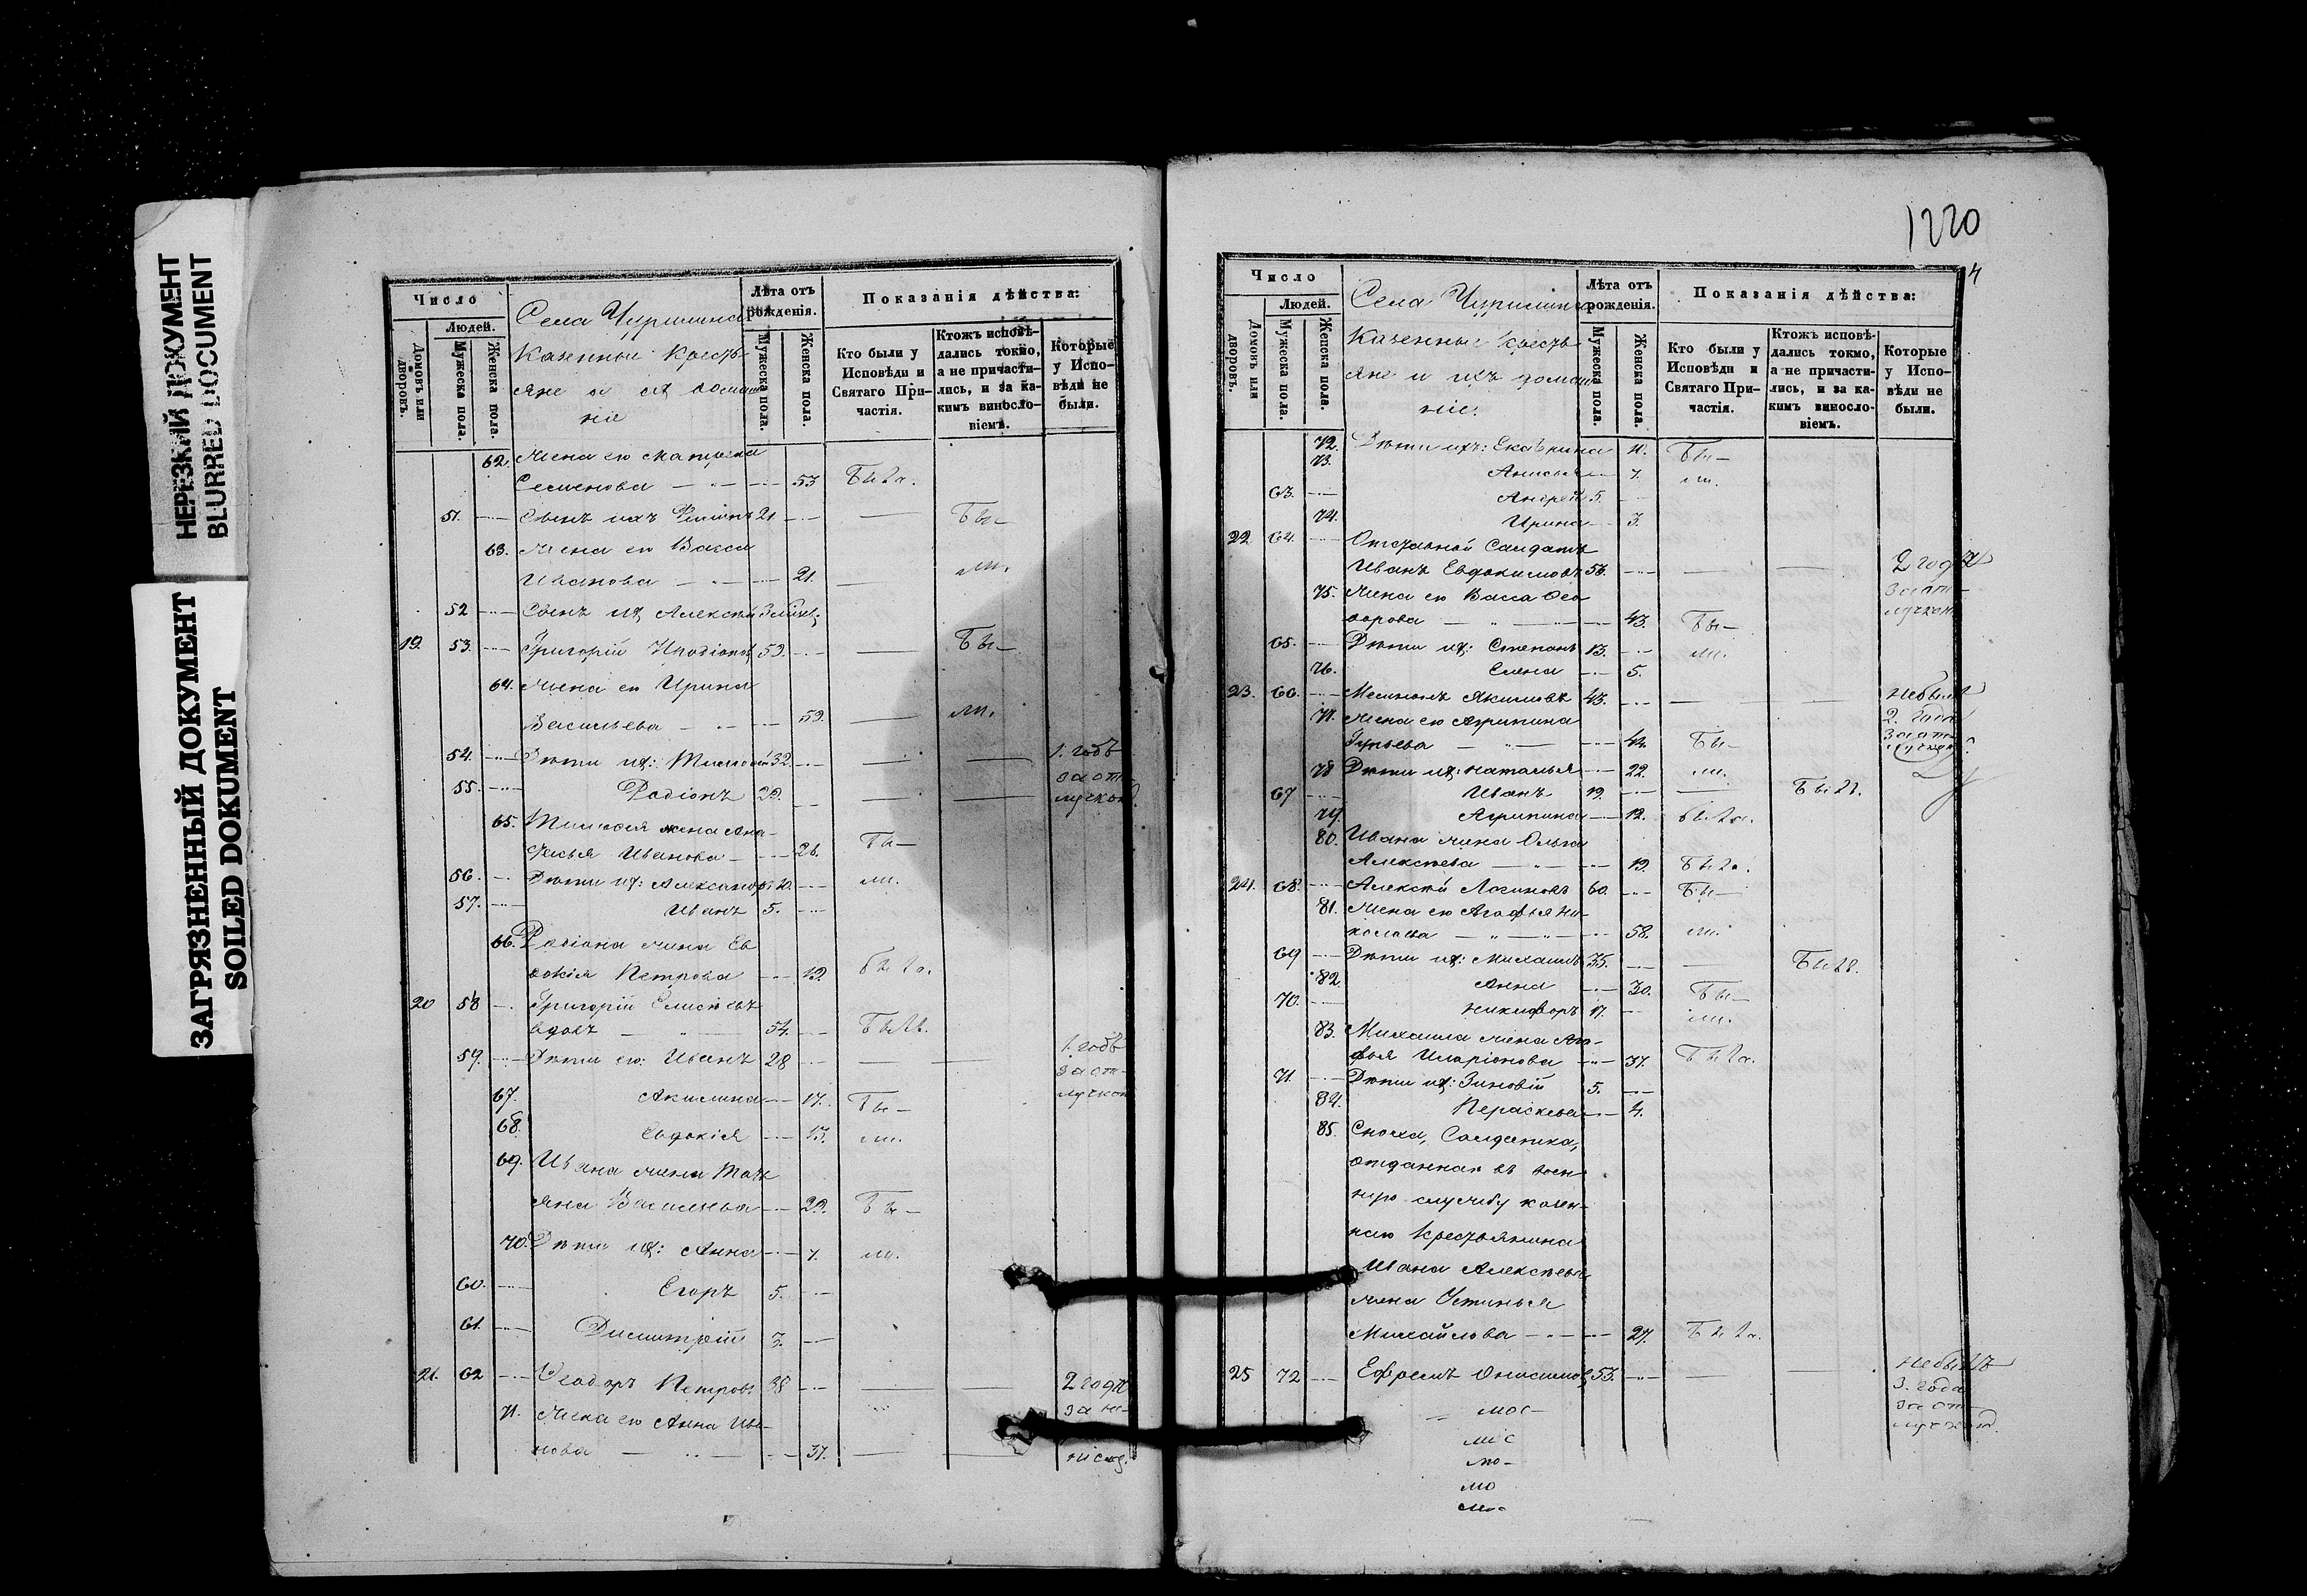 НЕРЕЗКИЙ ДОКУМЕНТ
BLURRED DOCUMENT
ЗАГРЯЗНЕННЫЙ ДОКУМЕНТ
SOILED DOKUMENT
Число
Людей.
Домовъ или дворовъ.
Мужеска пола.
Женска пола.
Села Чуришина
Казенные крестья
яне и их домаш
ніе
Лѣта отъ рожденія.
Мужеска пола.
Женска пола.
Показанія дѣйства:
Кто были у Исповѣди и Святаго Причастія.
Ктожъ исповѣдались токмо, а не причастились, и за какимъ винословіемъ.
Которые у Исповѣди не были.
62. Жена его Матрена
Семенова 53 Была.
51. Сынъ ихъ 21 Бы-
63. Жена его Васса
Иванова 21. ли.
52 Сынъ их Алексѣй
19. 53. Григорій 59. Бы-
64. Жена его Ирина
Васильева 59. ли.
54. Дѣти их: Тимофей 32. 1. годъ
за от
55. Радіонъ 22. лучкой.
65. Тимофея жена Ана-
стасья Иванова 26. Бы-
56. Дѣти их: Александръ 10. ли.
57. Иванъ 5.
66. Радіона жена Ев
докія Петрова 19. Была.
20 58 Григорій Елисѣевъ
вдовъ 54. Былъ.
59. Дѣти его: Иванъ 28 1. годъ
за от-
лучкой
67. Акилина 17. Бы-
68. Евдокія 13. ли.
69. Ивана жена Тать
яна Васильева 29. Бы-
70. Дѣти их: Анна 7. ли.
60. Егоръ 5.
61. Димитрій 3.
21. 62 Ѳеодоръ Петровъ 38 2 года
за не-
71. Жена его Анна Ива-
нова 37.
1220
4
Число
Людей.
Домовъ или дворовъ.
Мужеска пола.
Женска пола.
Села Чуришина
Казенные крестья
яне и ихъ домаш
ніе.
Лѣта отъ рожденія.
Мужеска пола.
Женска пола.
Показанія дѣйства:
Кто были у Исповѣди и Святаго Причастія.
Ктожъ исповѣдались токмо, а не причастились, и за какимъ винословіемъ.
Которые у Исповѣди не были.
72. Дѣти ихъ: Екатерина 11. Бы-
73. Анисья 7. ли.
63. Андрей 5.
74. Ирина 3.
22 64. Отставной Солдатъ
Иванъ Евдокимовъ 53. 2 года
за от-
лучкой
75. Жена его Васса Ѳео
дорова 43. Бы-
65. Дѣти их: Степанъ 13. ли.
76. Елена 5.
23. 66. Якимовъ 43. не былъ
2. года
за от-
лучкой
77. Жена его Агрипина
Гурьева 42. Бы-
78 Дѣти их: Наталья 22. ли.
67 Иванъ 19. Былъ.
79. Агрипина 12. была.
80. Ивана жена Ольга
Алексѣева 19. Была.
24. 68. Алексѣй Логиновъ 60. Бы-
81. Жена его Агафья Ни-
колаева 58. ли.
69 Дѣти их: Михаилъ 35. Былъ.
82. Анна 30. Бы-
70. Никифоръ 17. ли.
83. Михаила жена Ага-
фья Иларіонова 37. Была.
71. Дѣти их: Зиновій 5.
84. Параскева 4.
85. Сноха, Солдатка,
отданнаго въ воен-
ную службу казен-
наго крестьянина
Ивана Алексѣева
жена Устинья
Михайлова 27. Была.
25 72 Ефремъ Онисимов 53. не былъ
3. года
за от-
лучкой.